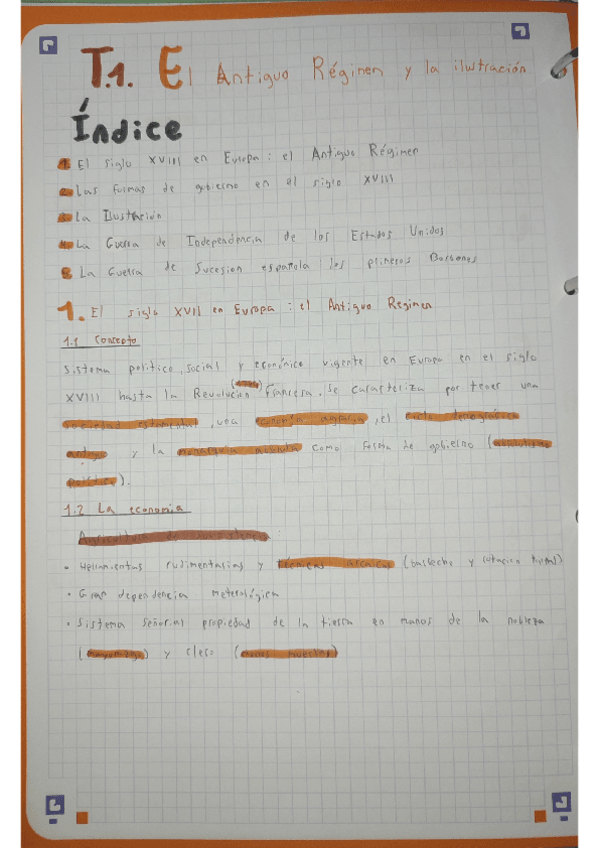 T.1. El Antiguo Régimen y la ilustración
Índice
1. El siglo XVIII en Europa: el Antiguo Régimen
2. Las formas de gobierno en el siglo XVIII
3. La Ilustración
4. La Guerra de Independencia de los Estados Unidos
5. La Guerra de Sucesion española: los primeros Borbones
1. El siglo XVII en Europa: el Antiguo Regimen
1.1 Concepto
Sistema politico, social y económico vigente en Europa en el siglo
XVIII hasta la Revolución Francesa. Se caracteriza por tener una
sociedad estamental, una economía agraria, el ciclo demográfico
antiguo y la monarquía absoluta como forma de gobierno (
política).
1.2 La economia
Agricultura de subsistencia
· Herramientas rudimentarias y técnicas arcaicas (barbecho y rotación
· Gran dependencia meterológica
· Sistema señorial propiedad de la tierra en manos de la nobleza
(mayorazgo) y clero (manos muertas)